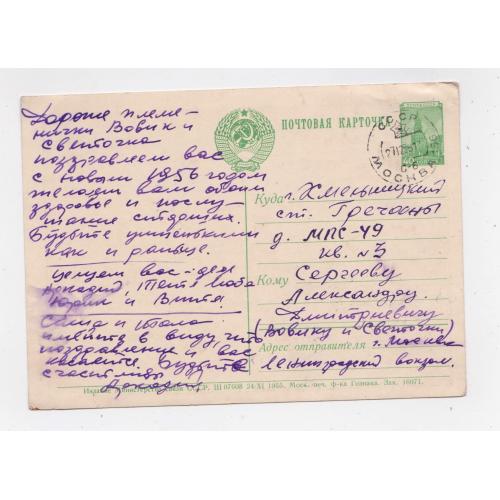 Дорогие племе-
нички Вовик и
Светочка
поздравляем вас
с новым 1956 годом
желаем вам обоим
здоровье и послу-
шание старших.
Будьте умненькими
как и раньше.
Целуем вас: дядя
Аркадий, Тётя Люба
Юрик и Витя.
Саша и Тома
имейте в виду, что
поздравление и вас
касается. Будьте
счастливы
Аркадий
ПОЧТОВАЯ КАРТОЧКА
СССР
МОСКВА
Куда г. Хмельницкий
ст. Гречаны
д. МПС-49
кв. №3
Кому Сергееву
Александру
Дмитриевичу
(Вовику и Светочки)
Адрес отправителя г. Москва
Ленинградский вокзал.
Издание Министерства связи СССР. Ш 07608 24/XI 1955. Моск. печ. ф-ка Гознака. Зак. 16071.